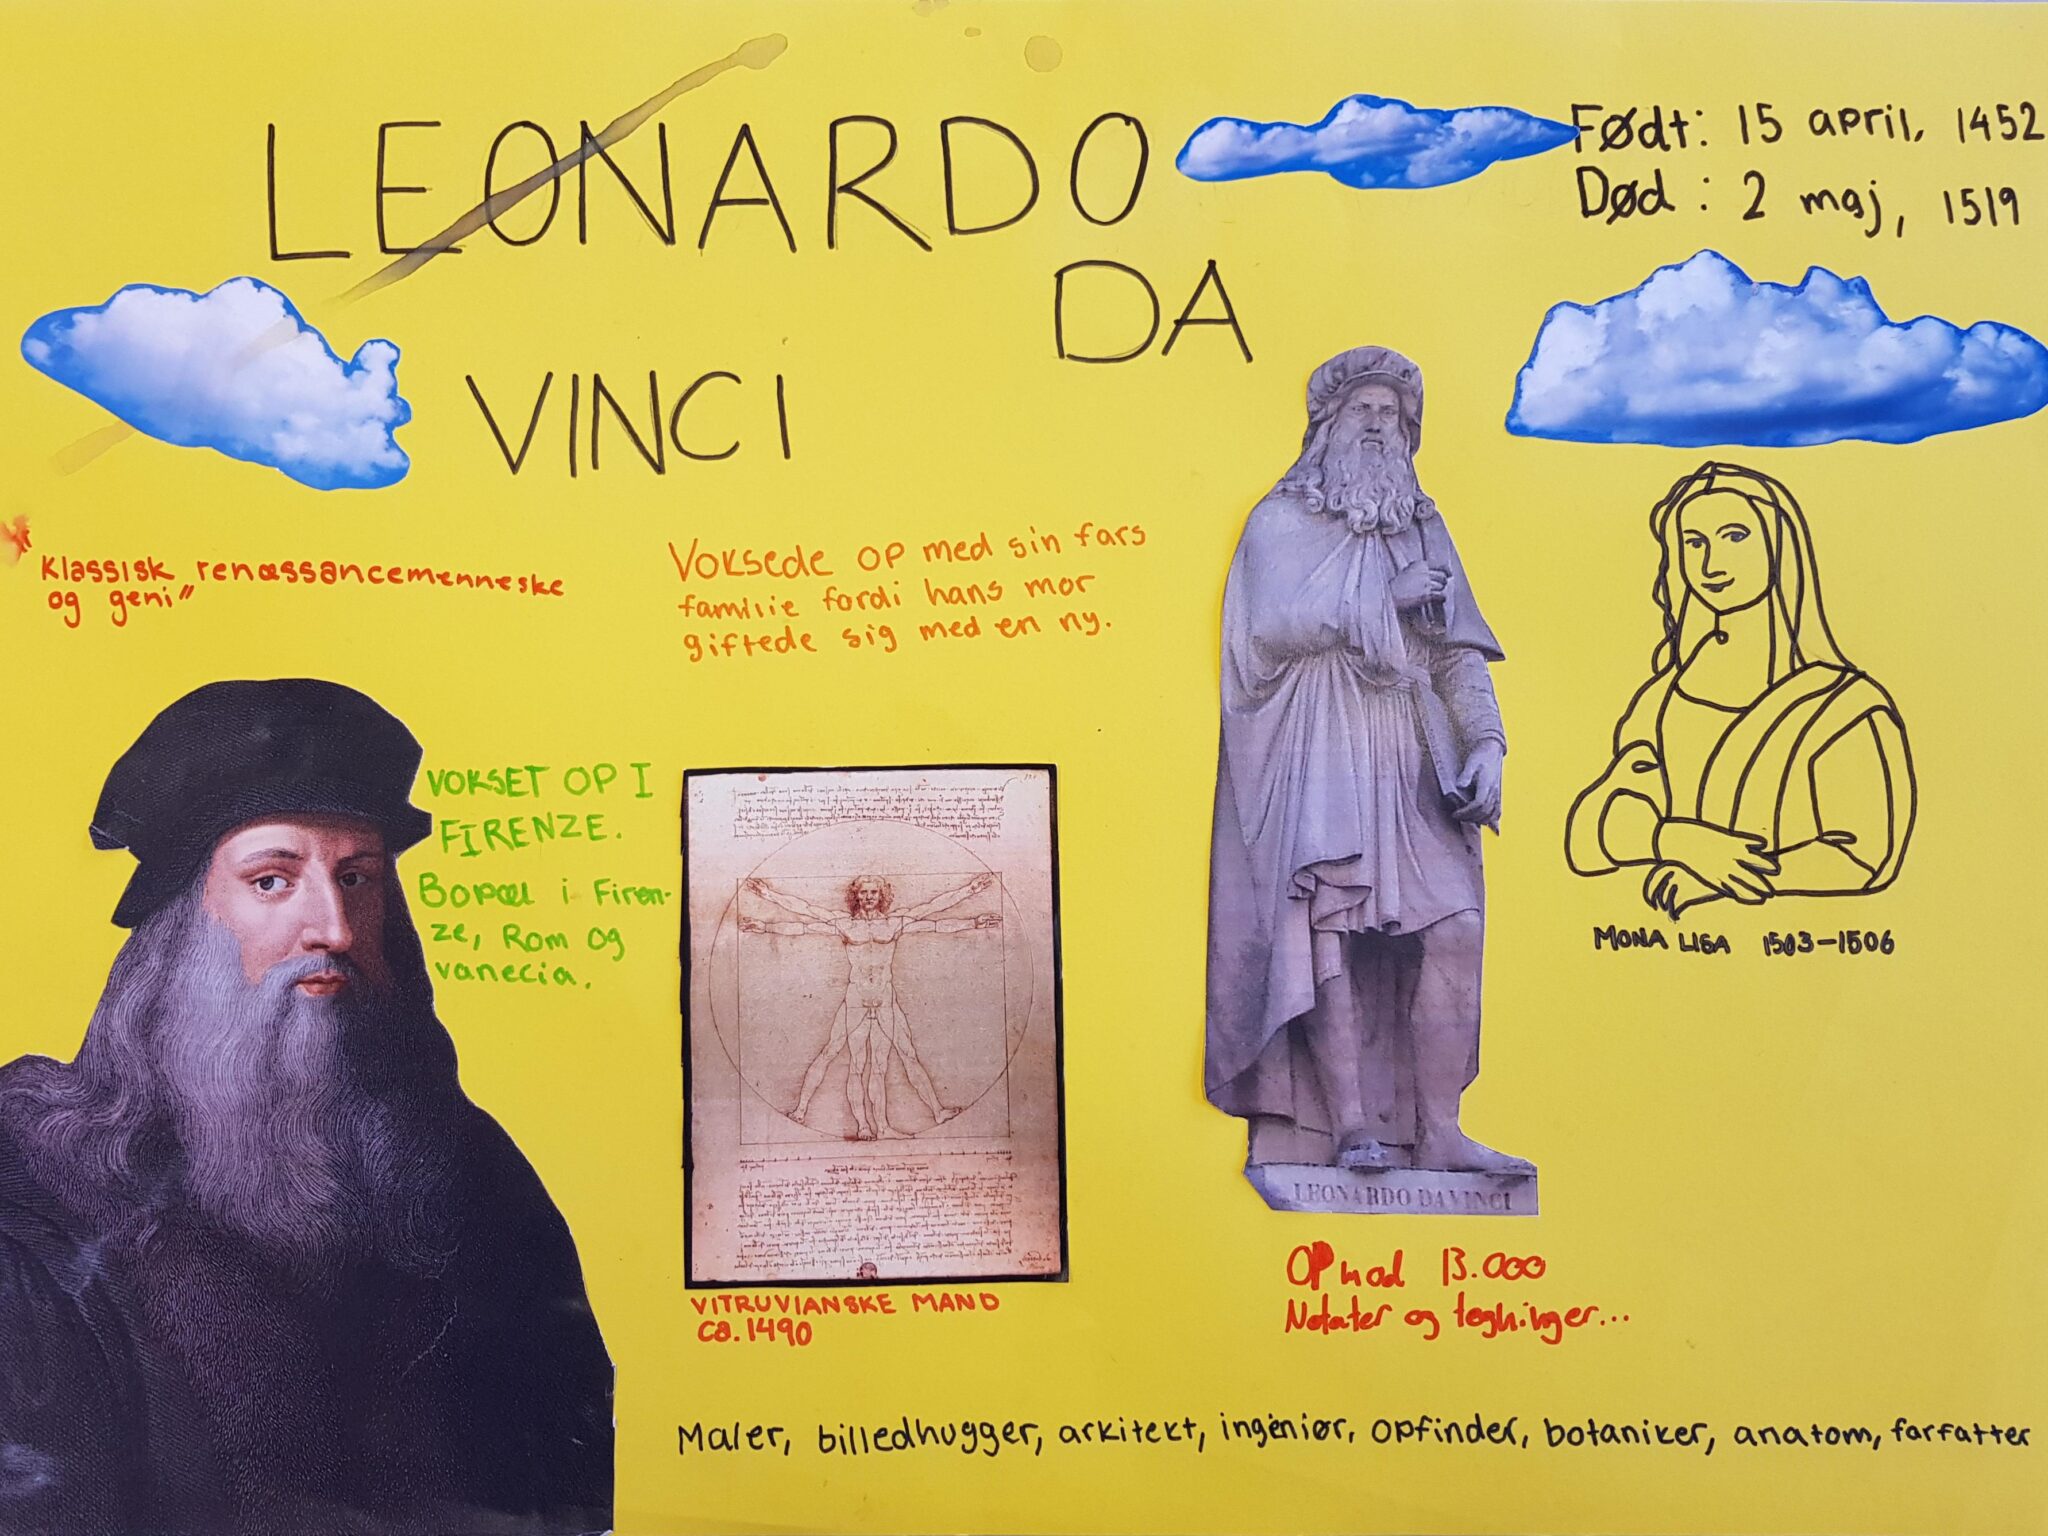 LEONARDO
DA
VINCI
Født: 15 april, 1452
Død : 2 maj, 1519
"Klassisk renæssancemenneske
og geni"
Voksede op med sin fars
familie fordi hans mor
giftede sig med en ny.
VOKSET OP I
FIRENZE.
Bopæl i Firen-
ze, Rom og
vanecia.
VITRUVIANSKE MAND
ca. 1490
LEONARDO DA VINCI
MONA LISA 1503-1506
OP mod 13.000
Notater og tegninger...
Maler, billedhugger, arkitekt, ingéniør, opfinder, botaniker, anatom, farfatter